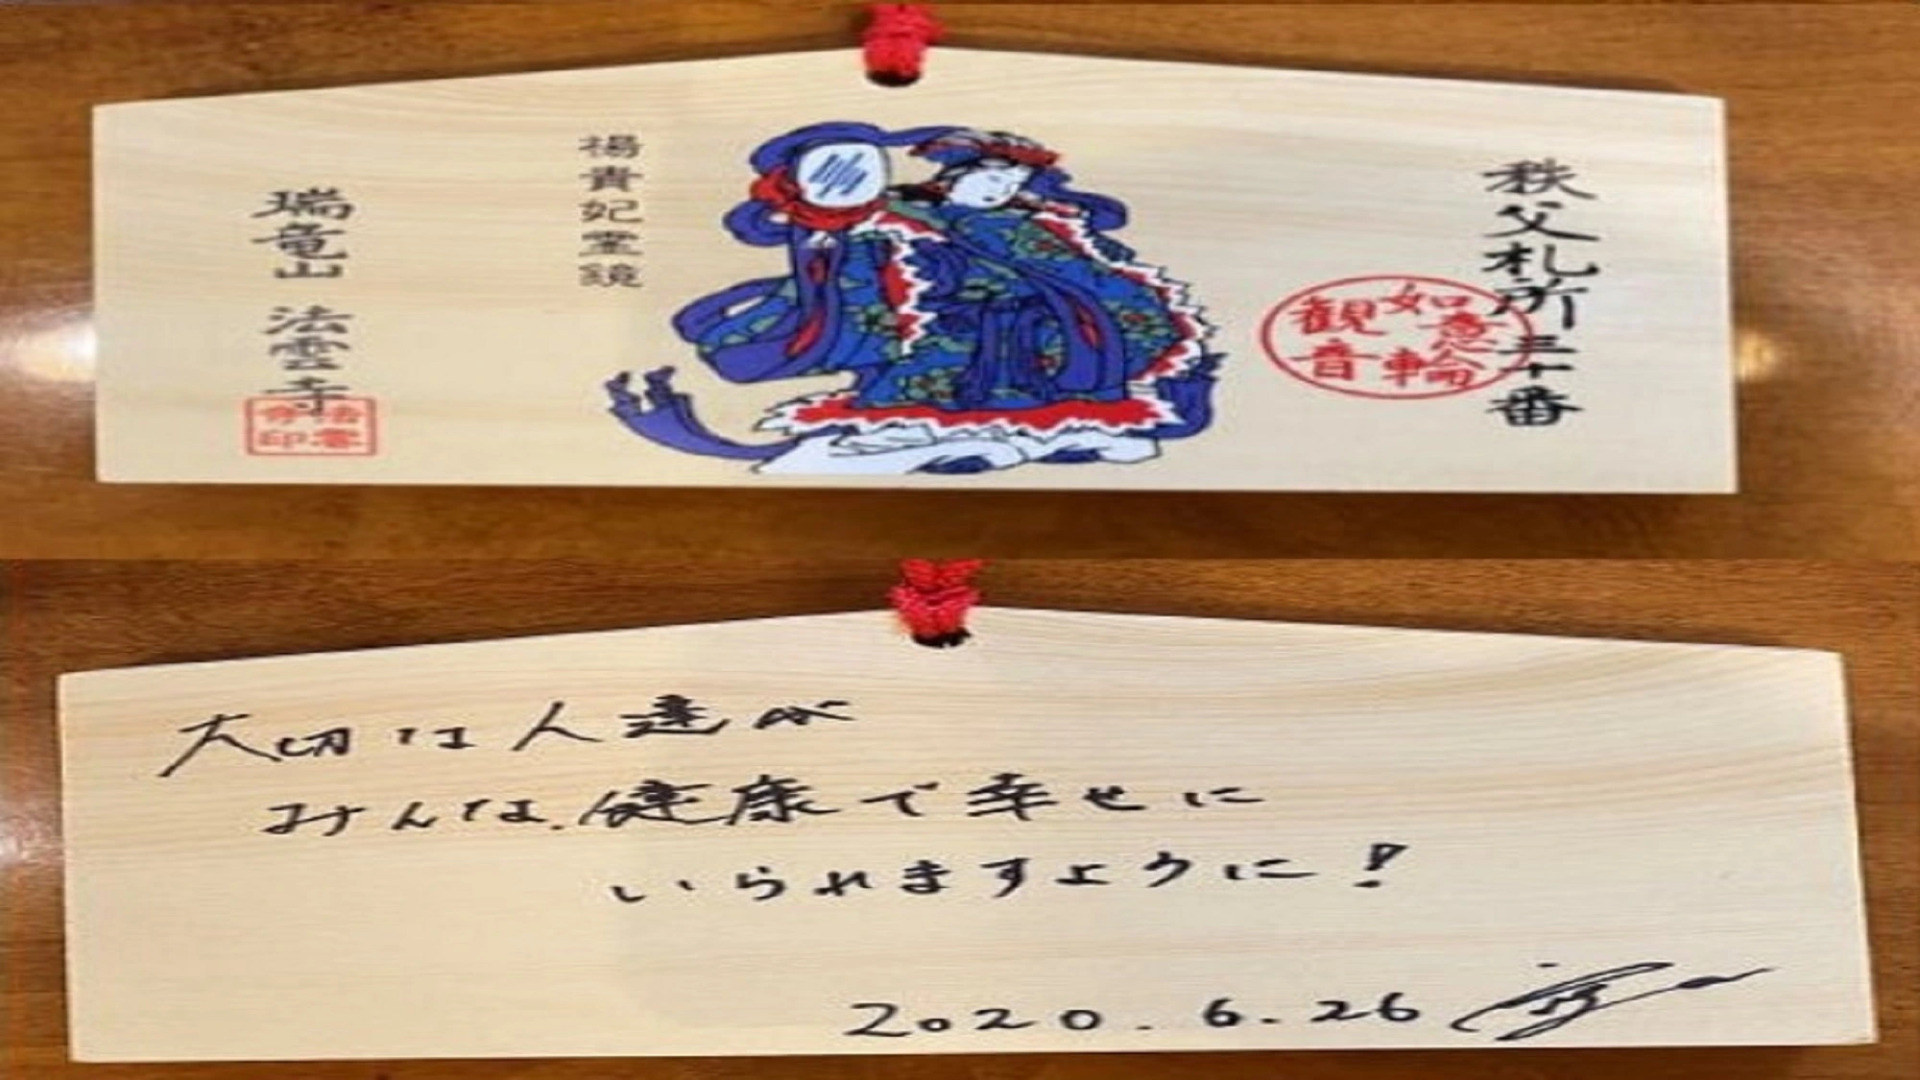 秩父札所三十番
如意輪
観音
楊貴妃堂鏡
瑞竜山 法雲寺
法雲
寺印
大切な人達が
みんな健康で幸せに
いられますように!
2020.6.26